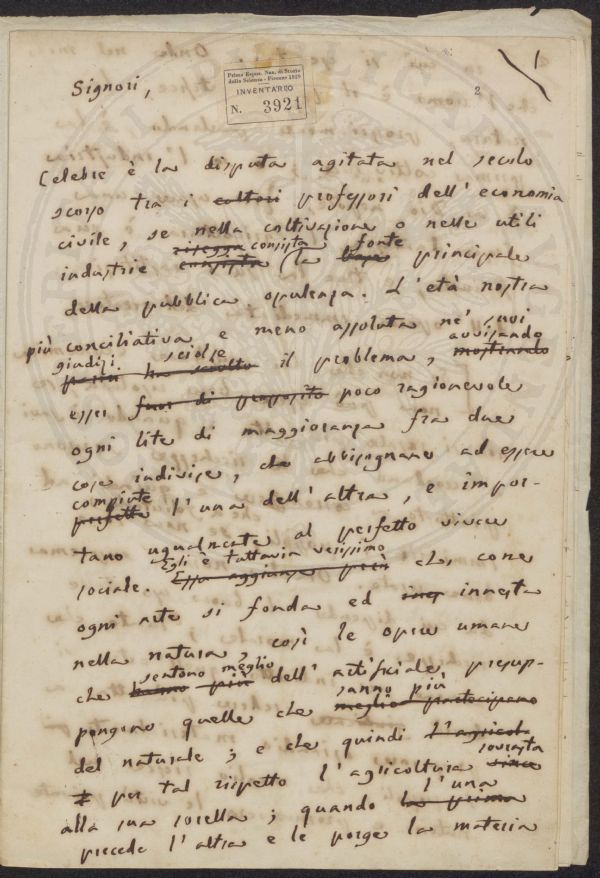 1
2
Prima Espos. Naz. di Storia
della Scienza - Firenze 1929
INVENTARIO
N. 3921
Signori,
Celebre è la disputa agitata nel secolo
scorso tra i cultori professori dell'economia
civile, se nella coltivazione o nelle utili
risegga consista fonte
industrie consista la base principale
della pubblica opulenza. L'età nostra
più conciliativa e meno assoluta ne' suoi
giudizi sciolse avvisando
ha sciolto il problema, mostrando
esser fuor di proposito poco ragionevole
ogni lite di maggioranza fra due
cose indivise, che abbisognano ad essere
compiute
perfette l'una dell'altra, e impor-
tano ugualmente al perfetto vivere
Egli è tuttavia verissimo
sociale. Essa aggiunse però che, come
ogni arte si fonda ed innesta
nella natura, così le opere umane
sentono meglio
che hanno più dell'artificiale, presup-
sanno più
pongono quelle che meglio partecipano
del naturale; e che quindi l'agricol
sovrasta
per tal rispetto l'agricoltura
l'una
alla sua sorella; quando la prima
precede l'altra e le porge la materia